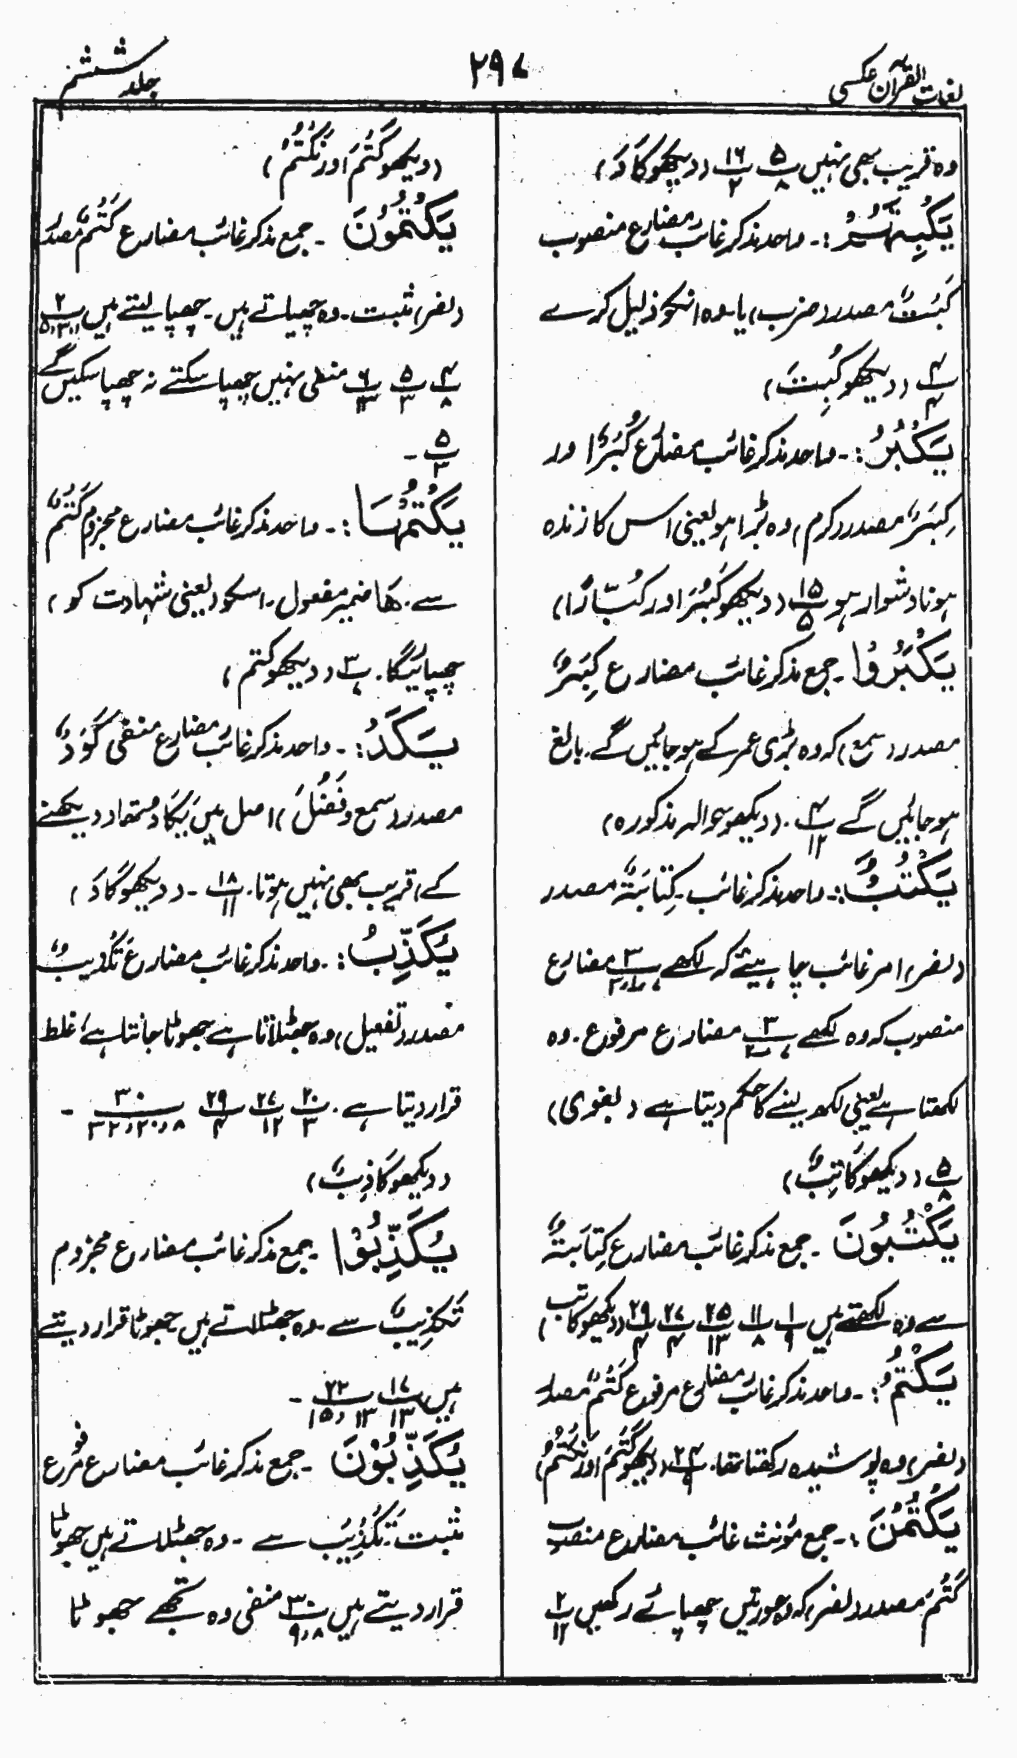 لغات القرآن عکسی
۲۹۷
جلد ششم
وہ قریب بھی نہیں پ ۵/۸ پ ۱۶/۲ (دیکھو کَادَ)
یَکْبِتَهُمْ:۔ واحد مذکر غائب مضارع منصوب
کَبْتٌ مصدر (ضرب) یا۔ وہ انکو ذلیل کرے
پ ۴/۴ (دیکھو کُبِتَ)
یَکْبُرُ:۔ واحد مذکر غائب مضارع کُبْرًا اور
کِبَرٌ مصدر (کرم) وہ بڑا ہو یعنی اس کا زندہ
ہونا دشوار ہو پ ۱۵/۵ (دیکھو کَبُرَ اور کُبَّارًا)
یَکْبَرُوْا۔ جمع مذکر غائب مضارع کِبَرٌ
مصدر (سمع) کہ وہ بڑی عمر کے ہو جائیں گے۔ بالغ
ہو جائیں گے پ ۴/۱۲۔ (دیکھو حوالہ مذکورہ)
یَکْتُبُ:۔ واحد مذکر غائب۔ کِتَابَةٌ مصدر
(نصر) امر غائب چاہیئے کہ لکھے پ ۳ مضارع
منصوب کہ وہ لکھے پ ۳ مضارع مرفوع۔ وہ
لکھتا ہے یعنی لکھ لینے کا حکم دیتا ہے (بغوی)
پ ۵/۸ (دیکھو کَاتِبٌ)
یَکْتُبُوْنَ۔ جمع مذکر غائب مضارع کِتَابَةٌ
سے وہ لکھتے ہیں پ ۱/۹ پ ۱۱/۸ پ ۲۵/۱۳ پ ۲۷/۴ پ ۲۹/۴ (دیکھو کاتب)
یَکْتُمُ:۔ واحد مذکر غائب مضارع مرفوع کَتْمٌ مصدر
(نصر) وہ پوشیدہ رکھتا تھا۔ پ ۲۴/۹ (دیکھو کَتَمَ اور نَکْتُمُ)
یَکْتُمْنَ:۔ جمع مؤنث غائب مضارع منصوب
کَتْمٌ مصدر (نصر) کہ وہ عورتیں چھپائے رکھیں پ ۲/۱۲
(دیکھو کَتَمَ اور نَکْتُمُ)
یَکْتُمُوْنَ۔ جمع مذکر غائب مضارع کَتْمٌ مصدر
(نصر) مثبت۔ وہ چھپاتے ہیں۔ چھپا لیتے ہیں پ ۲/۱،۳،۵
پ ۴/۸ پ ۵/۳ پ ۶/۱۳ منفی نہیں چھپا سکتے نہ چھپا سکیں گے
پ ۵/۳۔
یَکْتُمْهَا:۔ واحد مذکر غائب مضارع مجزوم کَتْمٌ
سے۔ ھا ضمیر مفعول۔ اسکو (یعنی شہادت کو)
چھپائیگا۔ پ ۳/۷ (دیکھو کتم)
یَکَدْ:۔ واحد مذکر غائب مضارع منفی کَوْدٌ
مصدر (سمع و فَضُلَ) اصل میں یَکَادُ تھا (دیکھنے
کے) قریب بھی نہیں ہوتا۔ پ ۱۸/۱۱۔ (دیکھو کَادَ)
یُکَذِّبُ:۔ واحد مذکر غائب مضارع تَکْذِیْبٌ
مصدر (تفعیل) وہ جھٹلاتا ہے جھوٹا جانتا ہے، غلط
قرار دیتا ہے۔ پ ۲۰/۳ پ ۲۷/۱۲ پ ۲۹/۴ پ ۳۰/۸،۲۰،۳۲۔
(دیکھو کَاذِبٌ)
یُکَذِّبُوْا۔ جمع مذکر غائب مضارع مجزوم
تَکْذِیْبٌ سے۔ وہ جھٹلاتے ہیں جھوٹا قرار دیتے
ہیں پ ۱۷/۱۳ پ ۲۲/۱۳،۱۵۔
یُکَذِّبُوْنَ۔ جمع مذکر غائب مضارع مرفوع
مثبت۔ تَکْذِیْبٌ سے۔ وہ جھٹلاتے ہیں جھوٹا
قرار دیتے ہیں پ ۳۰/۸،۹ منفی وہ تجھے جھوٹا